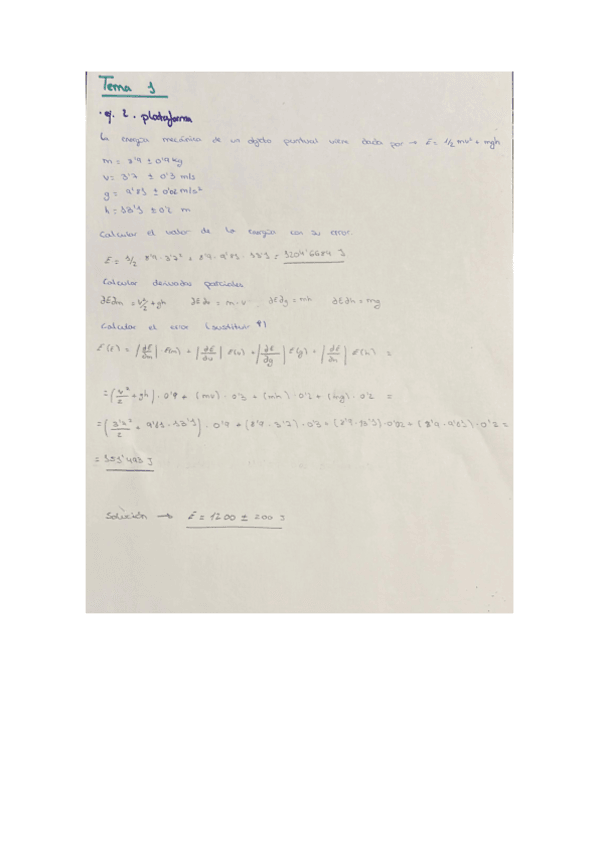 Tema 1
· ej. 2. plataforma
La energía mecánica de un objeto puntual viene dada por → E = 1/2 mv² + mgh
m = 8'9 ± 0'9 kg
v = 3'7 ± 0'3 m/s
g = 9'81 ± 0'02 m/s²
h = 13'1 ± 0'2 m
Calcular el valor de la energía con su error.
E = 1/2 8'9 · 3'7² + 8'9 · 9'81 · 13'1 = 1204'6684 J
Calcular derivadas parciales
∂E∂m = v²/2 + gh ∂E∂v = m·v ∂E∂g = mh ∂E∂h = mg
Calcular el error (sustituir)
E(E) = |∂E/∂m| · E(m) + |∂E/∂v| E(v) + |∂E/∂g| E(g) + |∂E/∂h| E(h) =
= (v²/2 + gh) · 0'9 + (mv) · 0'3 + (mh) · 0'2 + (mg) · 0'2 =
= (3'7²/2 + 9'81 · 13'1) · 0'9 + (8'9 · 3'7) · 0'3 + (8'9 · 13'1) · 0'02 + (8'9 · 9'81) · 0'2 =
= 151'493 J
Solución → E = 1200 ± 200 J